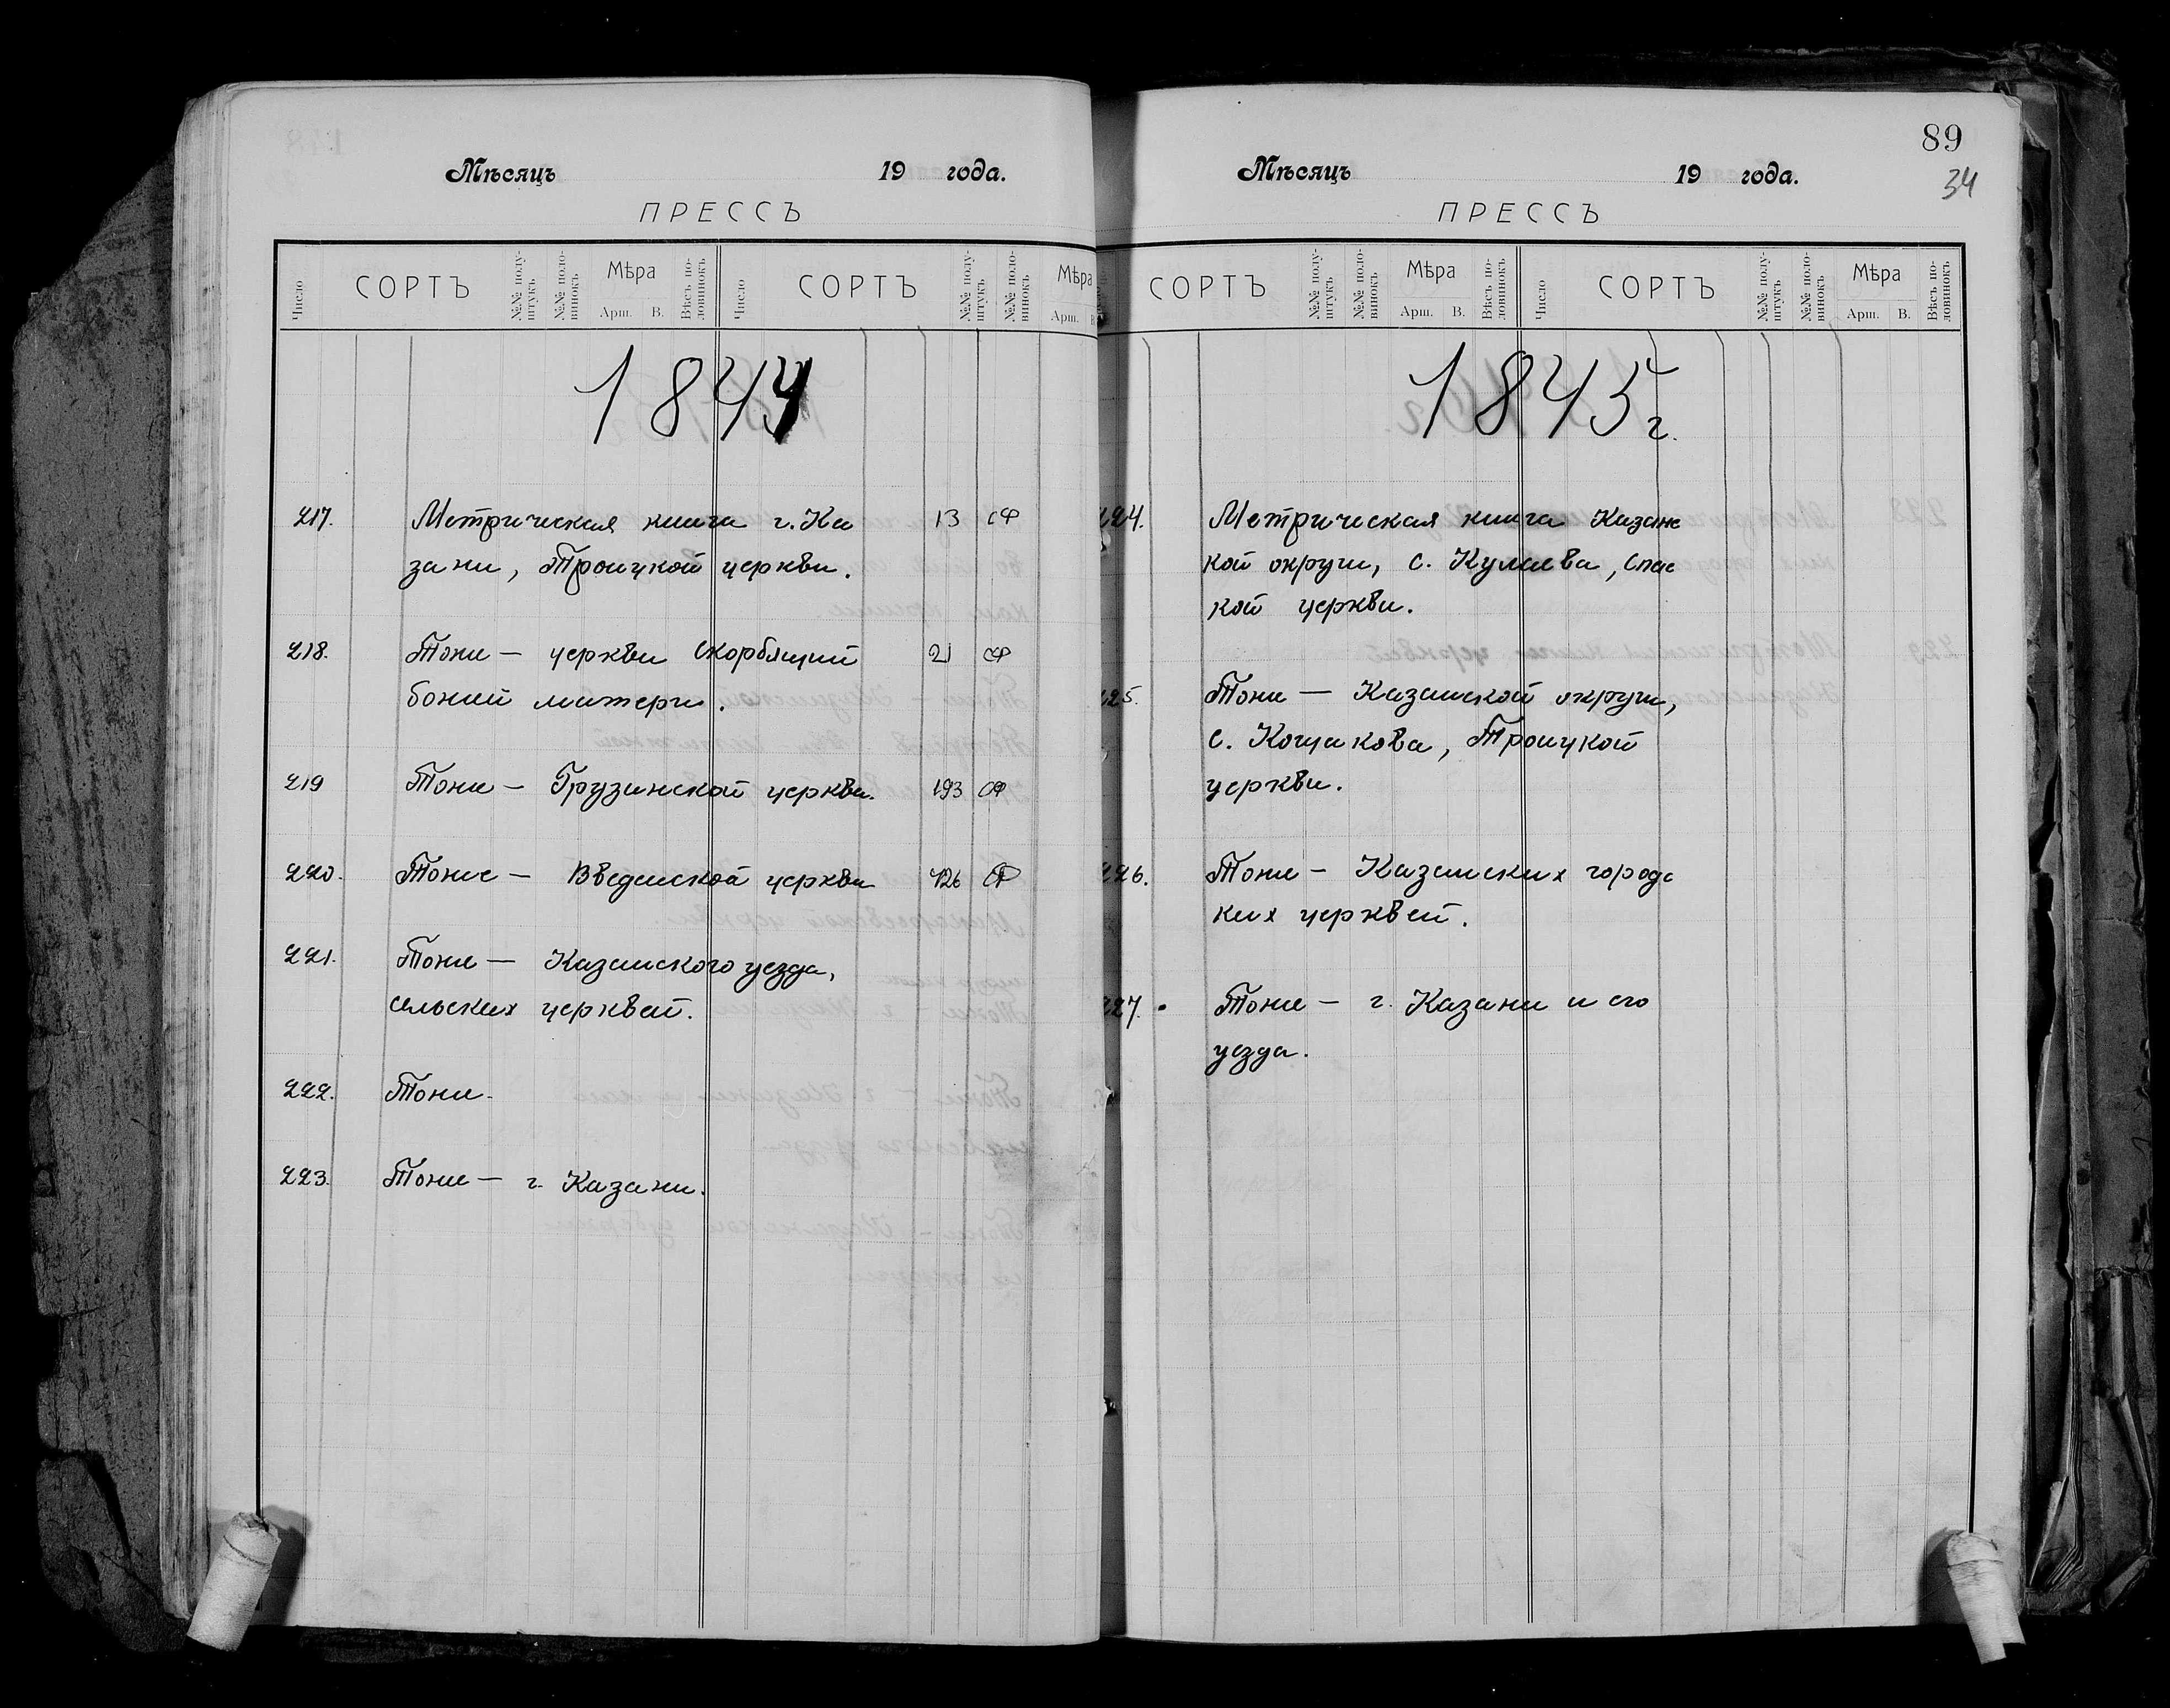 Мѣсяцъ 19 года.
ПРЕССЪ
Число СОРТЪ №№ полуштукъ №№ половинокъ Мѣра Арш. В. Вѣсъ половинокъ Число СОРТЪ №№ полуштукъ №№ половинокъ Мѣра Арш. В.
1844
217. Метрическая книга г. Ка 13 сф
зани, Троицкой церкви.
218. Тоже — церкви Скорбящий 21 сф
божий матери.
219 Тоже — Грузинской церкви. 193 сф
220. Тоже — Введенской церкви 426 сф
221. Тоже — Казанского уезда,
сельских церквей.
222. Тоже.
223. Тоже — г. Казани.
89
34
Мѣсяцъ 19 года.
ПРЕССЪ
СОРТЪ №№ полуштукъ №№ половинокъ Мѣра Арш. В. Вѣсъ половинокъ Число СОРТЪ №№ полуштукъ №№ половинокъ Мѣра Арш. В. Вѣсъ половинокъ
1845 г.
224. Метрическая книга Казанс
кой округи, с. Кулаева, Спас
кой церкви.
225. Тоже — Казанской округи,
с. Кощакова, Троицкой
церкви.
226. Тоже — Казанских городс
ких церквей.
227. Тоже — г. Казани и его
уезда.